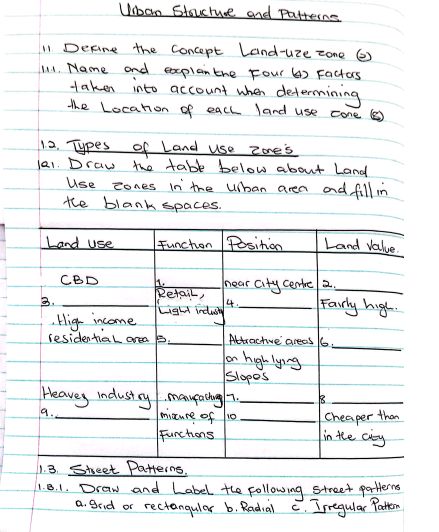 Urban Structure and Patterns
1.1 Define the Concept Land-uze zone (2)
1.1.1. Name and explain the Four (4) Factors
taken into account when determining
the Location of each land use zone (8)
1.2. Types of Land use zone's
1.2.1. Draw the table below about Land
Use zones in the urban area and fill in
the blank spaces.
Land use Function Position Land Value.
CBD 1.______ near City Centre 2.______
3.______ Retail, Light industry 4.______ Fairly high.
.High income
residential area 5.______ Attractive areas 6.______
on high lying
Slopes
Heavey industry .manufacturing 7.______ 8______
9.______ mixure of 10______ Cheaper than
Functions in the city
1.3. Street Patterns.
1.3.1. Draw and Label the following street patterns
a. Grid or rectangular b. Radial c. Irregular Pattern